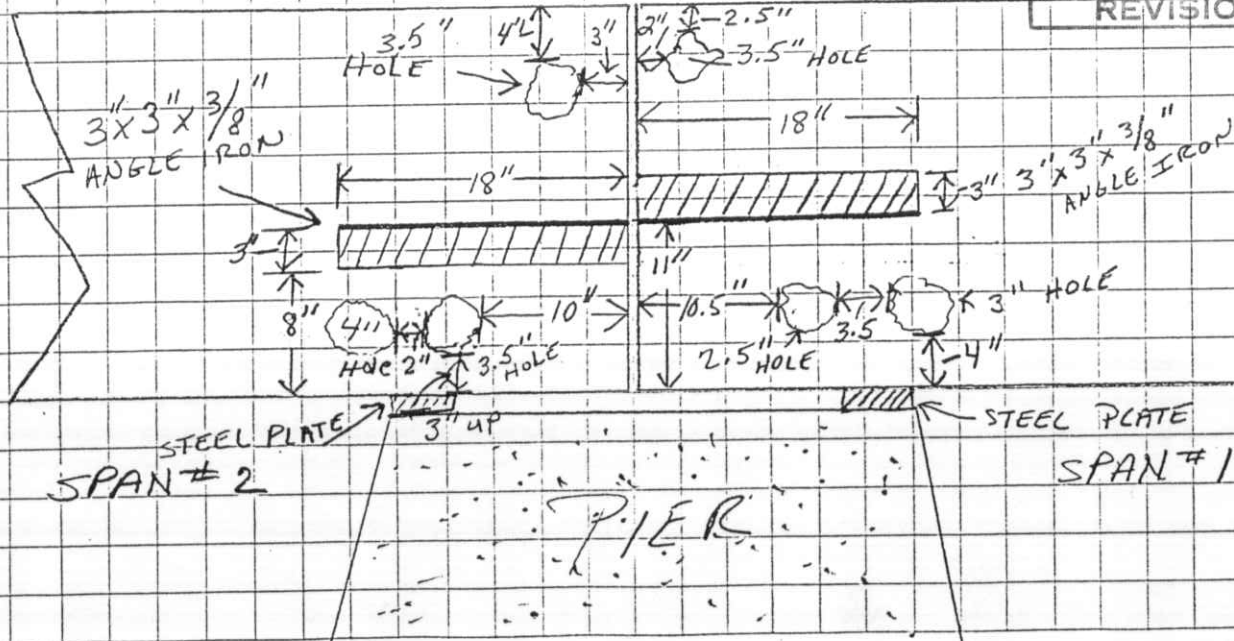 REVISIO
3.5"
HOLE
4"
3"
2"
2.5"
3.5" HOLE
3" x 3" x 3/8"
ANGLE IRON
18"
18"
3"
3" x 3" x 3/8"
ANGLE IRON
3"
11"
8"
4"
HOLE
2"
3.5"
HOLE
10"
10.5"
2.5" HOLE
3.5
3" HOLE
4"
STEEL PLATE
3" UP
STEEL PLATE
SPAN # 2
SPAN # 1
PIER